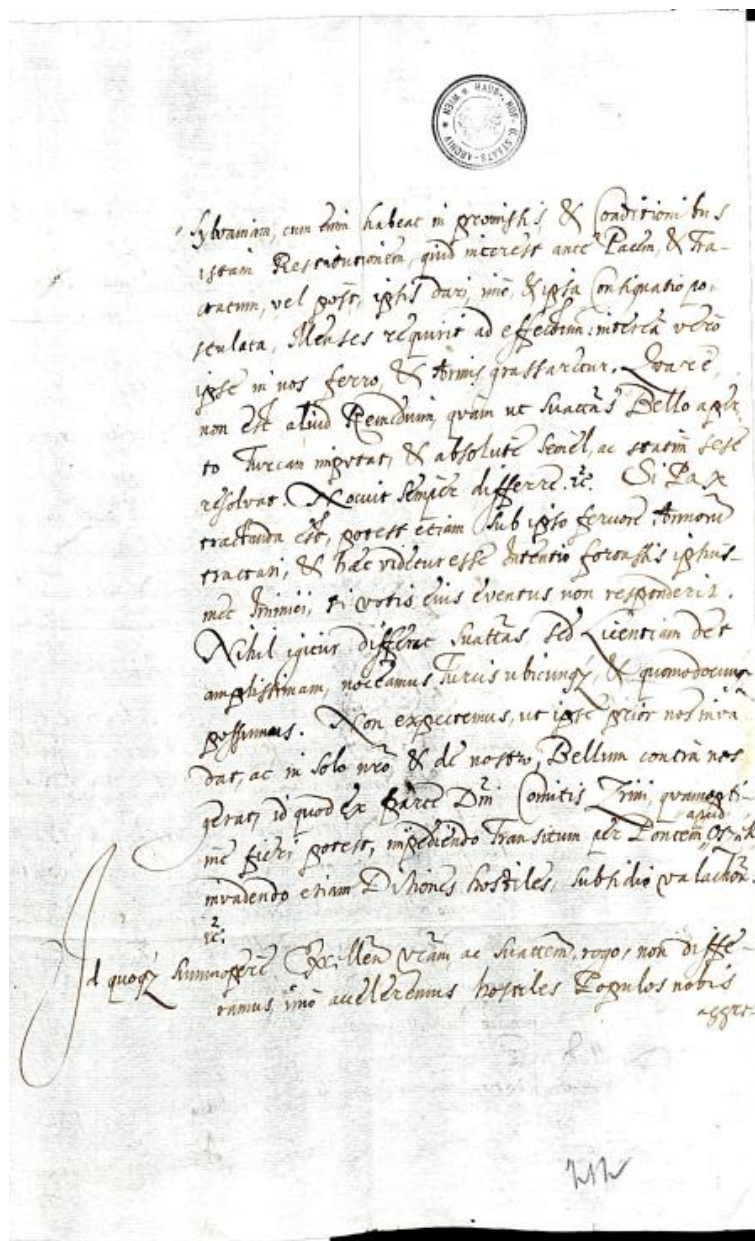 HAUS-, HOF- U. STAATS-ARCHIV * WIEN *
sylvaniam, cum enim habeat in promissis & Conditionibus
istam Restitutionem, quid interest ante Pacem, & Tra-
ctatum, vel post, ipsis dari, imo, & ipsa Contiguatio po-
stulata, Menses requirit ad effectum: interea vero
ipse in nos ferro, & Armis grassaretur. Quare,
non est aliud Remedium, quam ut Suattas Bello aper
to Turcam impetat, & absolute semel, ac statim sese
resolvat. Nocuit semper differre. &c. Si Pax
tractanda est, potest etiam sub ipso fervore Armorū
tractari, & haec videtur esse Intentio forassis ipsius-
met Inimici, si votis eius eventus non responderit.
Nihil igitur differat Suattas sed Licentiam det
amplissimam, noceamus Turcis ubicunqȝ, & quomodocunqȝ
possumus. Non expectemus, ut ipse prior nos inva
dat, ac in solo nrō, & de nostro, Bellum contra nos
gerat, id quod ex parte Dni Comitis Zrini, quam opti-
me fieri potest, impediendo Transitum per Pontem apud Oszek
invadendo etiam Ditiones hostiles, subsidio valachorū.
&c.
Id quoqȝ summopere Excellen vram, ac Suattem, rogo, non diffe-
ramus, imo acceleremus, hostiles Populos nobis
aggre-